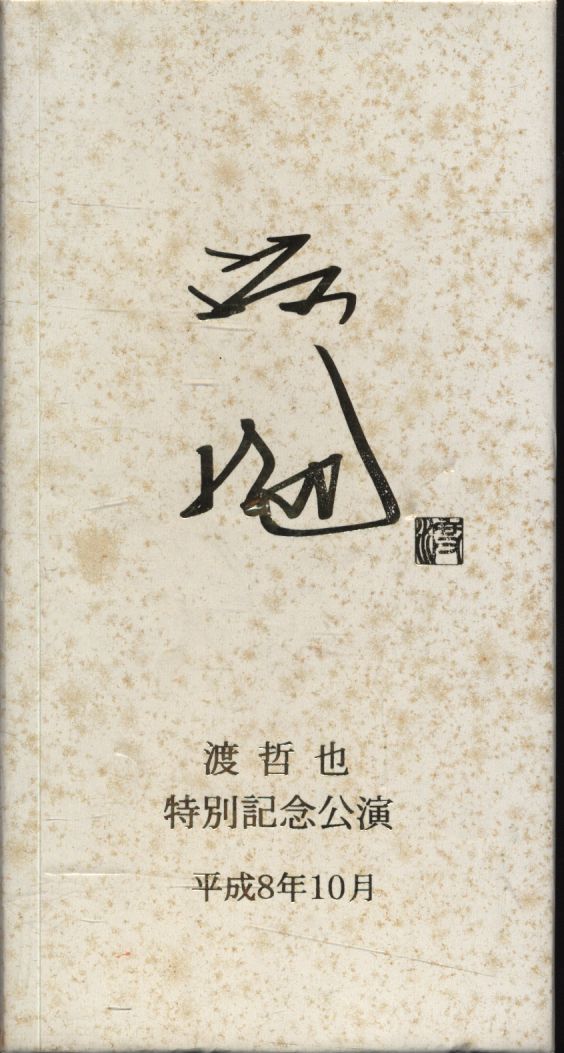 渡
渡哲也
特別記念公演
平成8年10月